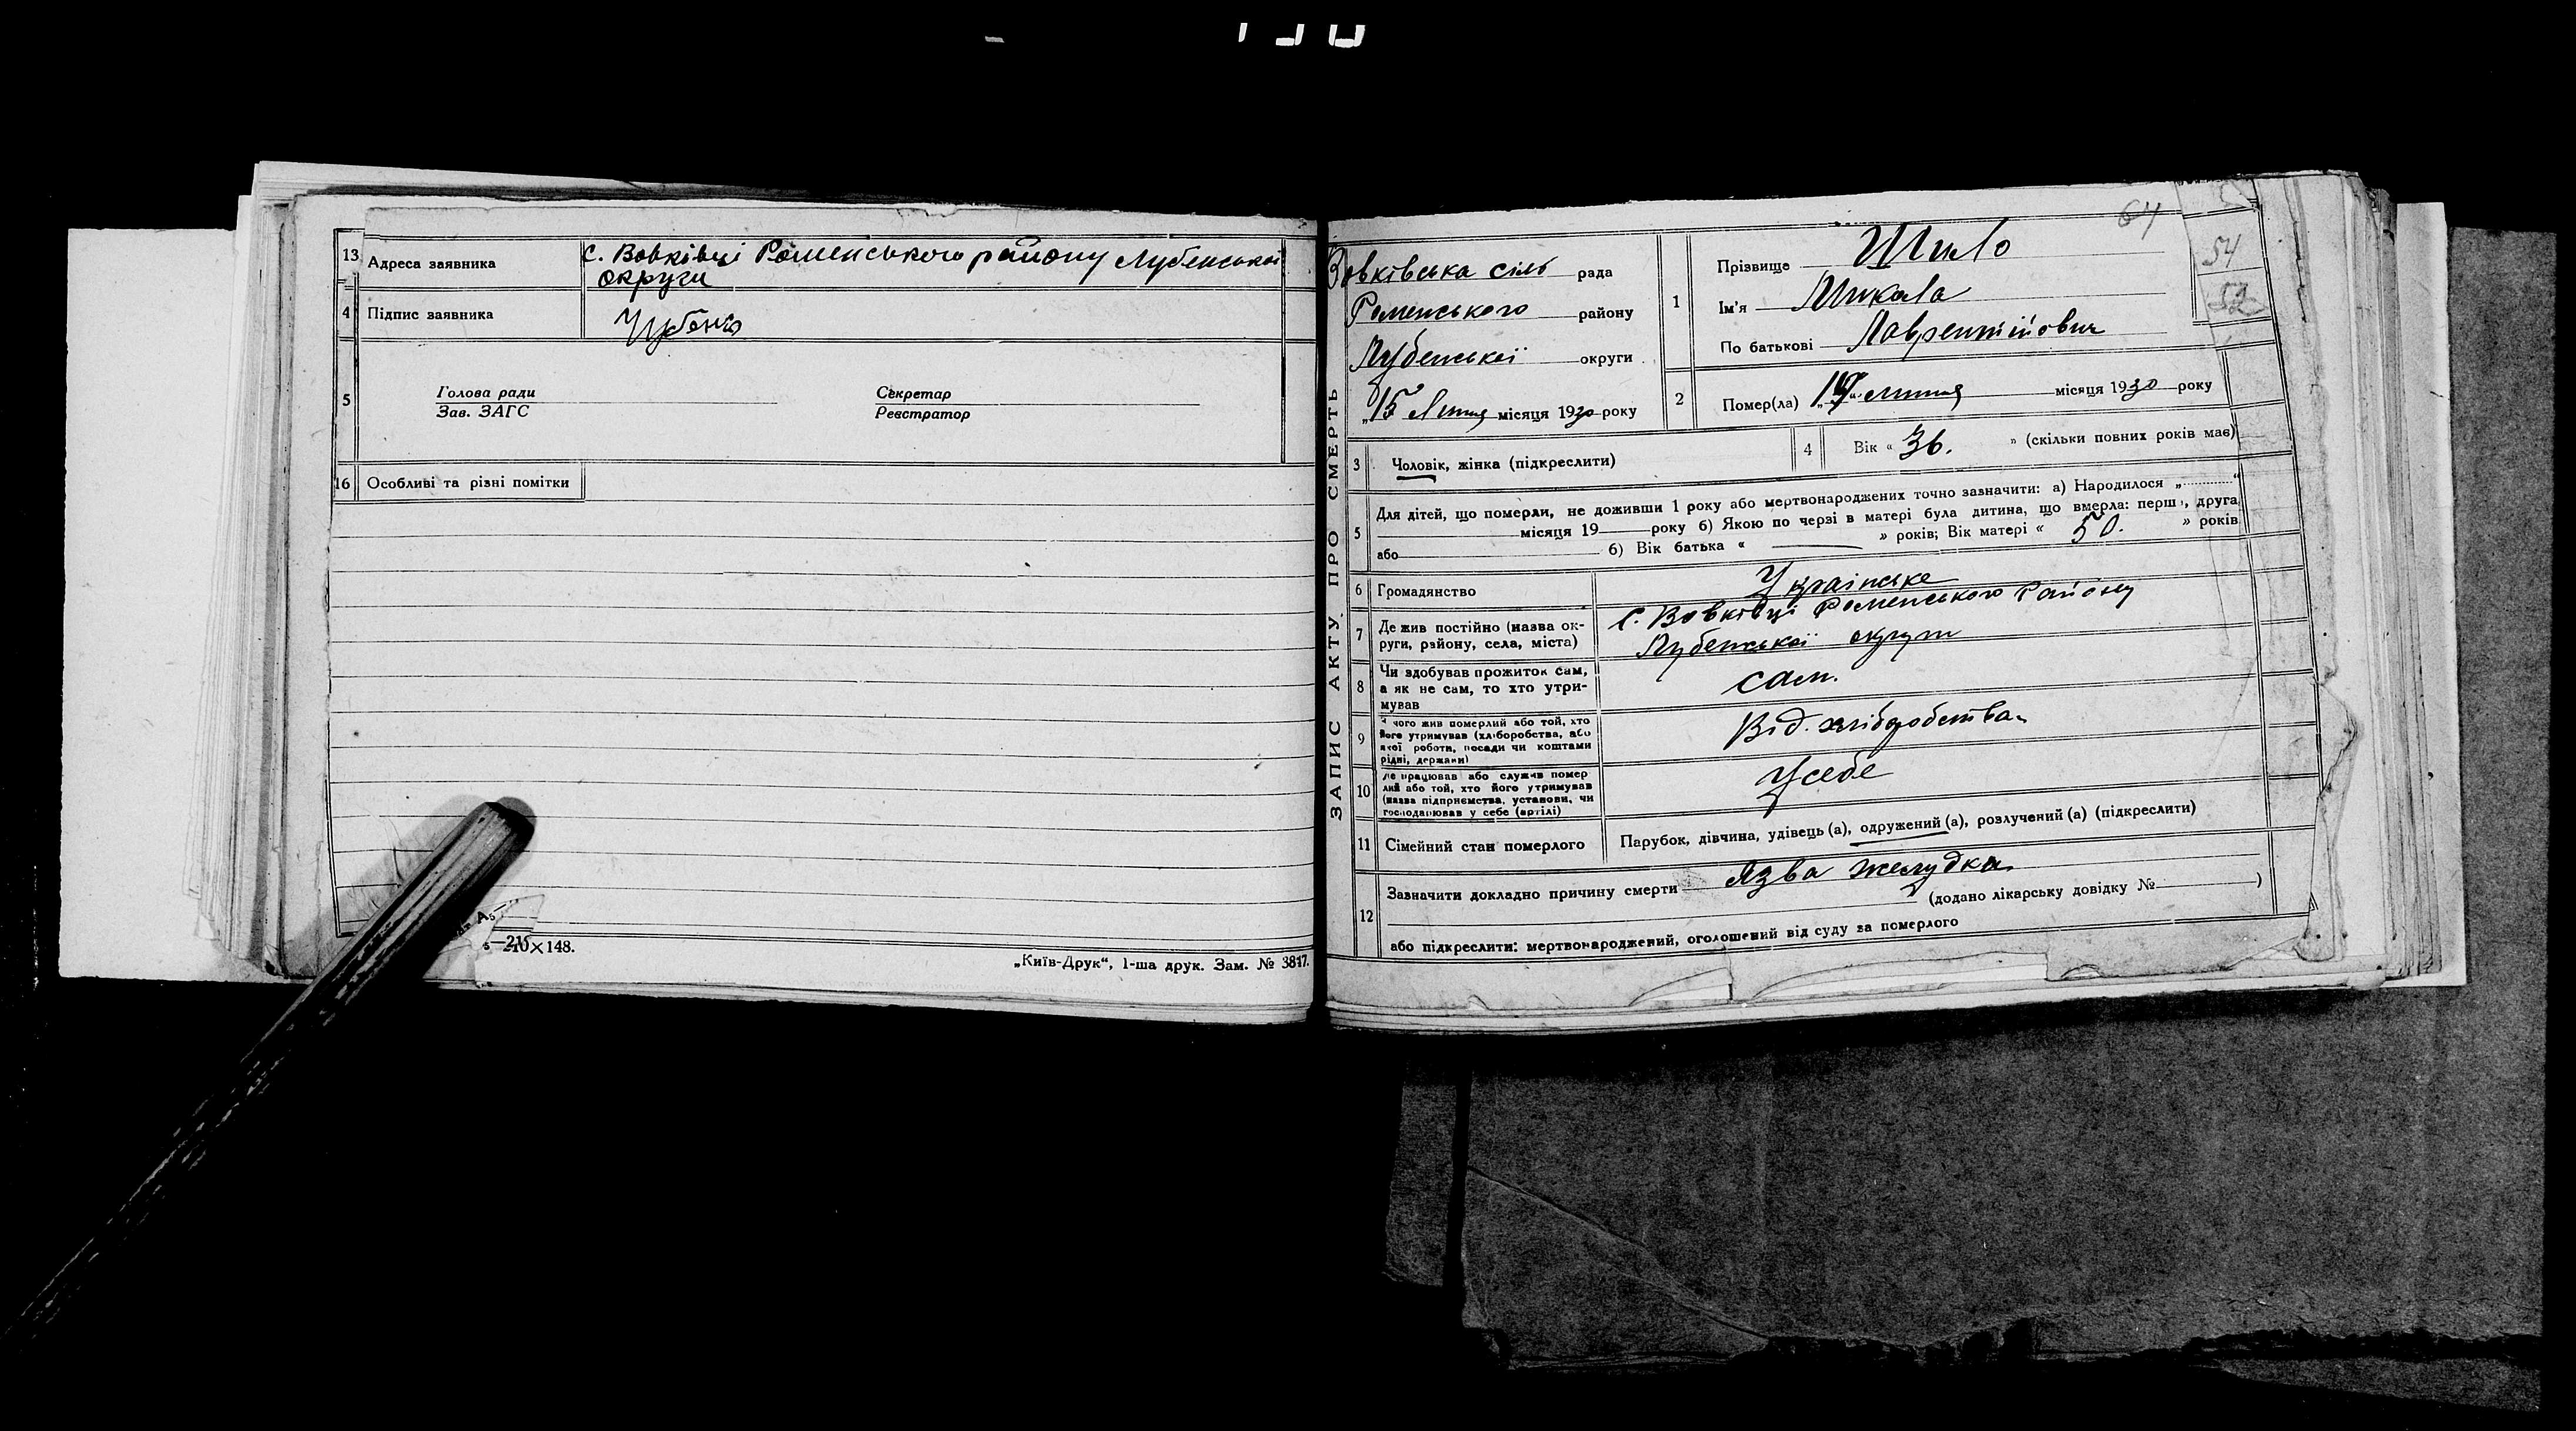 13 Адреса заявника с. Вовківці Роменського району Лубенської
округи
4 Підпис заявника
5 Голова ради Секретар
Зав. ЗАГС Реєстратор
16 Особливі та різні помітки
210×148.
„Київ-Друк“, 1-ша друк. Зам. № 3817.
64
54
52
ЗАПИС АКТУ ПРО СМЕРТЬ
Вовківська сіль рада
Роменського району
Лубенської округи
„15 Липня місяця 1930 року
1 Прізвище Шило
Ім'я Микола
По батькові Лаврентійович
2 Помер(ла) липня місяця 1930 року
3 Чоловік, жінка (підкреслити)
4 Вік « 36. » (скільки повних років має)
5 Для дітей, що померли, не доживши 1 року або мертвонароджених точно зазначити: а) Народилося „ “
місяця 19 року б) Якою по черзі в матері була дитина, що вмерла: перш, друга
або б) Вік батька « » років; Вік матері « 50. » років
6 Громадянство Українське
7 Де жив постійно (назва ок- с. Вовківці Роменського Району
руги, району, села, міста) Лубенської округи
8 Чи здобував прожиток сам, сам.
а як не сам, то хто утри-
мував
9 чого жив померлий або той, хто Від. хліборобства
його утримував (хліборобства, або
якої роботи, посади чи коштами
рідні, держави)
10 де працював або служив помер У себе
лий або той, хто його утримував
(назва підприємства, установи, чи
господарював у себе (артілі)
11 Сімейний стан померлого Парубок, дівчина, удівець (а), одружений (а), розлучений (а) (підкреслити)
12 Зазначити докладно причину смерти Язва желудка
(додано лікарську довідку № )
або підкреслити: мертвонароджений, оголошений від суду за померлого